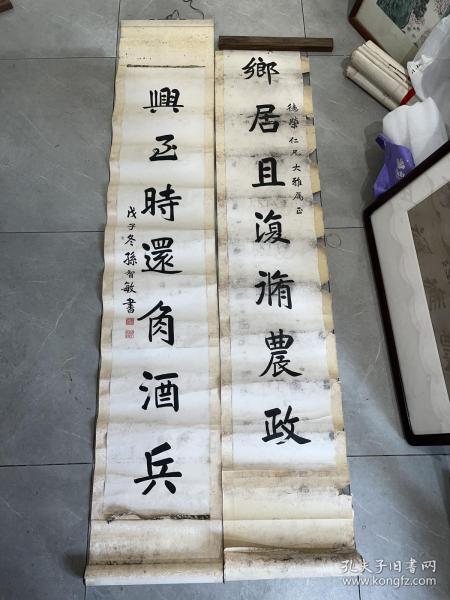 鄉居且復脩農政
德榮仁兄大雅属正
興至時還角酒兵
戊子冬孫智敏書
孔夫子旧书网
www.kongfz.com